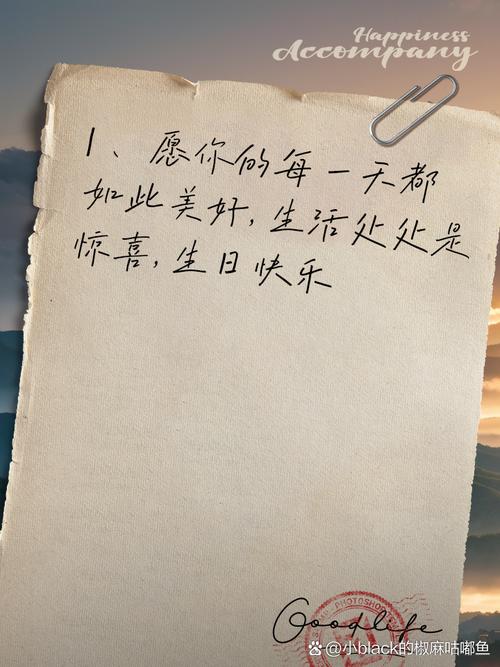 Happiness
Accompany
1、愿你的每一天都
如此美好,生活处处是
惊喜,生日快乐
PHOTOSHOP
Goodlife
小black的椒麻咕嘟鱼